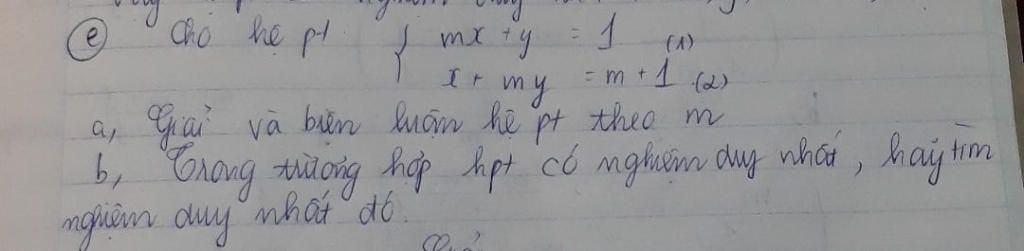 nghiệm duy
e Cho hệ pt { mx + y = 1 (1)
x + my = m + 1 (2)
a, Giải và biện luận hệ pt theo m
b, Trong trường hợp hpt có nghiệm duy nhất, hãy tìm
nghiệm duy nhất đó.
Giải